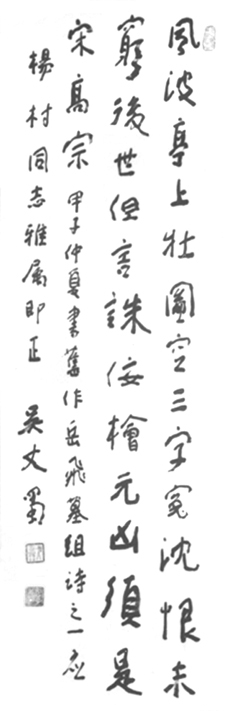 風波亭上壮圖空三字冤沈恨未
窮後世但言誅佞檜元凶須是
宋高宗 甲子仲夏書舊作岳飛墓組詩之一應
楊村同志雅属即正 吴丈蜀